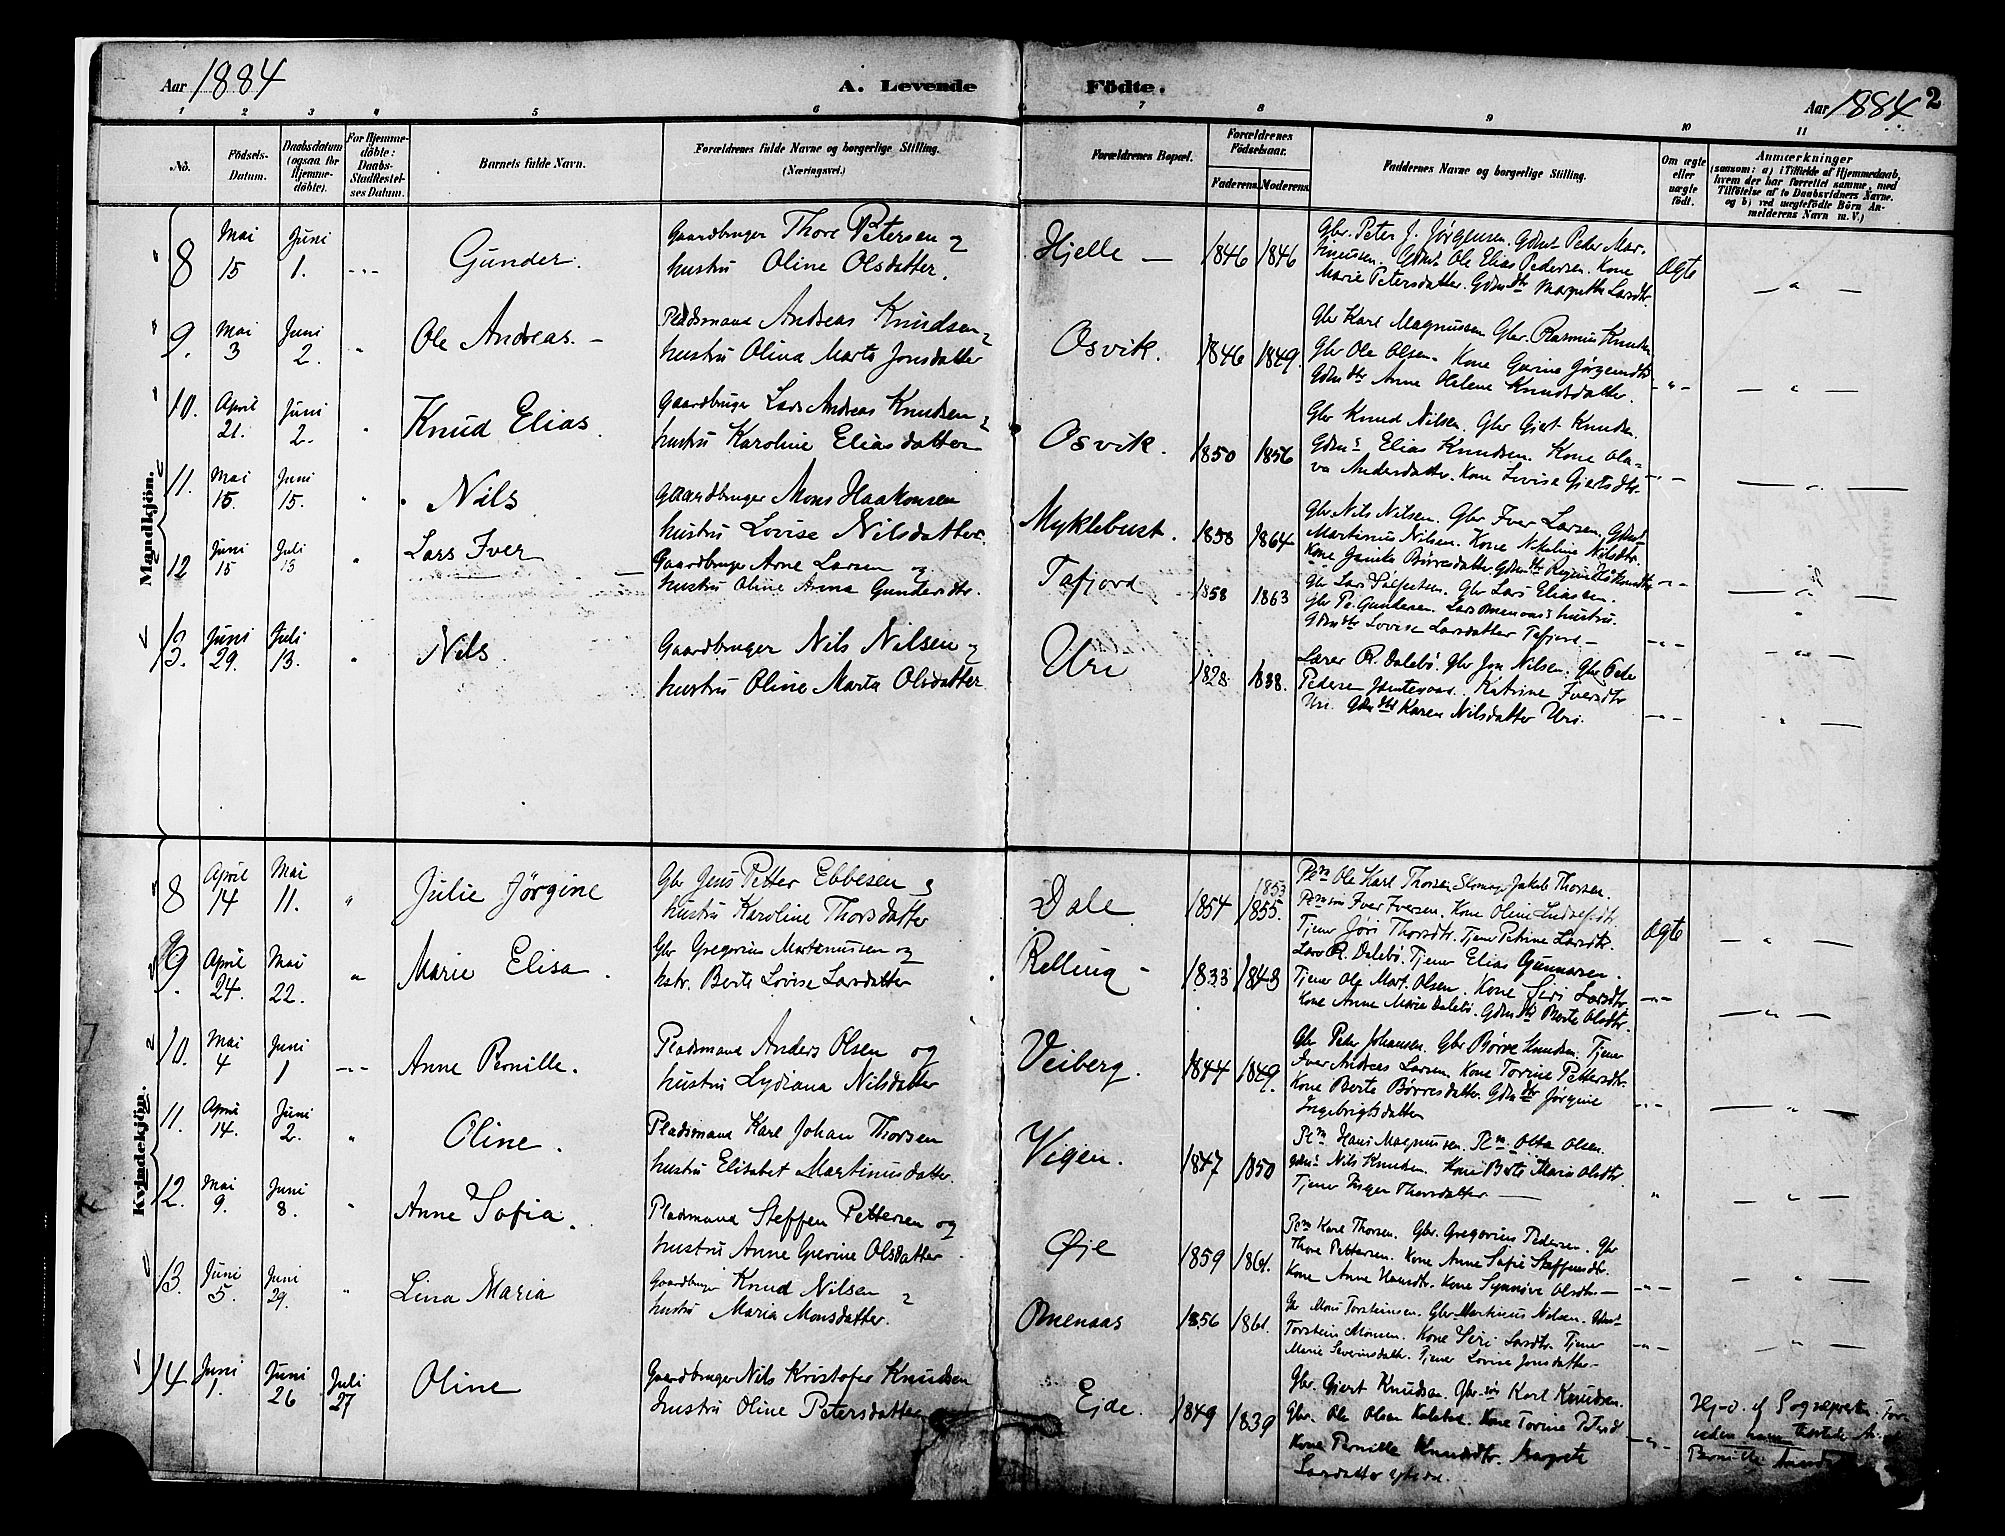 Aar 1884
A. Levende
Födte.
Aar 1884
2
1 2 3 4 5 6 7 8 9 10 11
No.
Födsels-
Datum.
Daabsdatum
(ogsaa for
Hjemme-
döbte).
For Hjemme-
döbte:
Daabs-
Stadfæstel-
ses Datum.
Barnets fulde Navn.
Forældrenes fulde Navne og borgerlige Stilling.
(Næringsvei.)
Forældrenes Bopæl.
Forældrenes
Födselsaar.
Faderens. Moderens.
Faddernes Navne og borgerlige Stilling.
Om ægte
eller
uægte
födt.
Anmærkninger
(saasom: a) i Tilfælde af Hjemmedaab,
hvem der har forrettet samme, med
Tilföielse af to Daabsvidners Navne,
og b) ved uægtefödte Börn An-
melderens Navn m. V.)
Mandkjön.
8
Mai
15
Juni
1.
Gunder.
Gaardbruger Thore Petersen og
hustru Oline Olsdatter.
Hjelle
1846 1846
Gbr. Peter J. Jørgensen. Gdmt Peder Mar-
tinussen. Gdmt Ole Elias Pedersen. Kone
Marie Petersdatter. Gdmdtr Margrethe Larsdtr.
Ægte
9.
Mai
3
Juni
2.
Ole Andreas.
Pladsmand Andreas Knudsen
hustru Olina Marta Jonsdatter
Osvik.
1846 1849.
Gbr Karl Magnussen Gbr. Rasmus Knudsen
Gbr Ole Olsen. Kone Gurine Jørgensdtr
Gdmdtr Anne Helene Knudsdatter.
10.
April
21.
Juni
2.
Knud Elias.
Gaardbruger Lars Andreas Knudsen
hustru Karoline Eliasdatter
Osvik.
1850 1856
Gbr Knud Nilsen. Gbr Giert Knudsen.
Gdms Elias Knudsen. Kone Ola-
va Andersdatter. Kone Lovise Giertsdtr.
11.
Mai
15.
Juni
15.
Nils
Gaardbruger Mons Haakonsen
hustru Lovise Nilsdatter.
Myklebust.
1858 1864
Gbr Nils Nilsen. Gbr Iver Larsen. Gdmt
Martinus Nilsen. Kone Nikoline Nilsdtr.
Kone Børresdatter. Gdmdtr
12
Juni
15
Juli
13
Lars Iver
Gaardbruger Arne Larsen og
hustru Oline Anna Gundersdtr.
Tafjord
1858 1863
Gbr Lars Gbr Lars Eliassen.
Gbr P. Gundersen. Lars hustru.
Gdmdtr Lovise Larsdatter Tafjord
13.
Juni
29.
Juli
13.
Nils.
Gaardbruger Nils Nilsen og
hustru Oline Marta Olsdatter
Uri
1828 1838.
Lærer R. Dalebø. Gbr Jon Nilsen. Gbr Peder
Pedersen Katrine Iversdtr
Uri. Gdmdtr Karen Nilsdatter Uri.
Kvindekjön.
8
April
14
Mai
11.
Julie Jørgine
Gbr Jens Petter Ebbesen og
hustru Karoline Thorsdatter
Dale
1854
1853
1855.
Plm Ole Karl Thorsen Jakob Thorsen.
Iver Iversen. Kone Oline
Tjener Jøri Thorsdtr. Tjener Petrine Larsdtr.
Ægte
9.
April
24.
Mai
22.
Marie Elisa.
Gbr Gregorius Martinussen og
hstr. Berte Lovise Larsdatter
Relling
1833 1843
R. Dalebø. Tjener Elias Gunnarsen.
Tjener Ole Mart. Olsen. Kone Seri Larsdtr
Kone Anne Marie Dalebø. Gdmdtr Berte Olsdtr.
10.
Mai
4
Juni
1
Anne Pernille.
Pladsmand Anders Olsen og
hustru Lydiana Nilsdatter
Veiberg.
1844 1849.
Gbr Peter Johansen. Gbr Børre Knudsen. Tjener
Iver Andreas Larsen. Kone Torrine Pettersdtr.
Kone Berte Børresdatter. Gdmdtr Jørgine
Ingebrigtsdatter
11.
April
14.
Juni
2.
Oline.
Pladsmand Karl Johan Thorsen
hustru Elisabet Martinusdatter.
Vigen.
1847 1850
Plm Hans Magnussen. Plm. Olsen.
Gdms Nils Knudsen. Kone Berte Maria Olsdtr.
Tjener Inger Thorsdatter
12.
Mai
9.
Juni
8.
Anne Sofia.
Pladsmand Steffen Pettersen og
hustru Anne Olsdatter
Øje
1859 1861.
Plm Karl Thorsen. Gbr. Gregorius Pedersen. Gbr
Thore Pettersen. Kone Anne Sofie Steffensdtr.
Kone Anne Kone Synnøve Olsdtr
13.
Juni
5.
Juni
29.
Lina Maria
Gaardbruger Knud Nilsen
hustru Maria Monsdatter.
Omenaas
1856 1861.
Gbr Mons Torsteinsen. Gbr Martinus Nilsen.
Torstein Monsen. Kone Seri Larsdtr. Tjener
Marie Severinsdatter. Tjener Lovise Jonsdatter
14
Juni
1.
Juni
26
Juli
27
Oline
Gaardbruger Nils Kristofer Knudsen
hustru Oline Petersdatter
Eide.
1849 1839
Gbr. Giert Knudsen. Gbr. Karl Knudsen.
Gbr. Ole Olsen Kone Torrine Petersd.
Kone Pernille Knudsdtr. Margrete
Larsdatter
Hj-d. af Sognepresten
Pernille